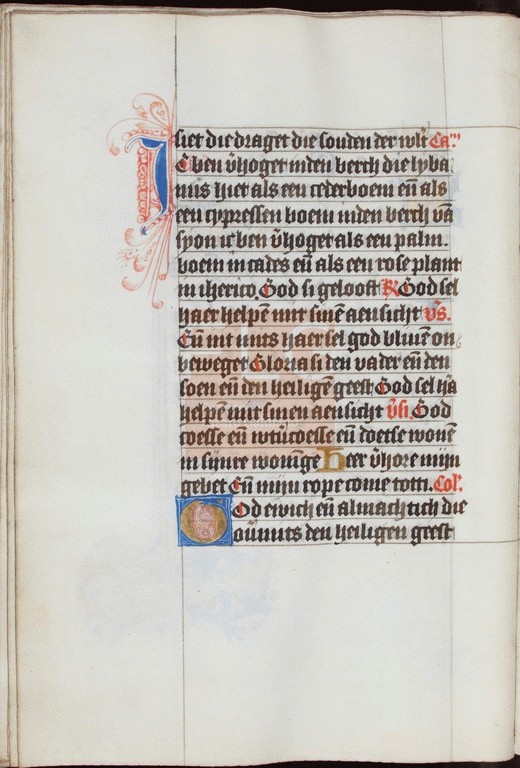 siet die draget die sonden der wlt Ca.
C ben v̄hoget inden berch die lyba
nus hiet als een cederboem en̄ als
een cypressen boem inden berch vā
syon ic ben v̄hoget als een palm.
boem in cades en̄ als een rose plant
in iherico. God si gelooft R God sel
haer helpē mit sinē aensicht vs.
En̄ mit mits haer sel god bliuen on
beweget Gloria si den vader en̄ den
soen en̄ den heiligē geest God sel hā
helpē mit sinen aensicht vsi. God
coesse en̄ wtv̄coesse en̄ doetse wonē
in sijnre wonīge Heer v̄hore mijn
gebet En̄ mijn rope come totti. Col'.
God ewich en̄ almachtich die
ouermits den heiligen geest